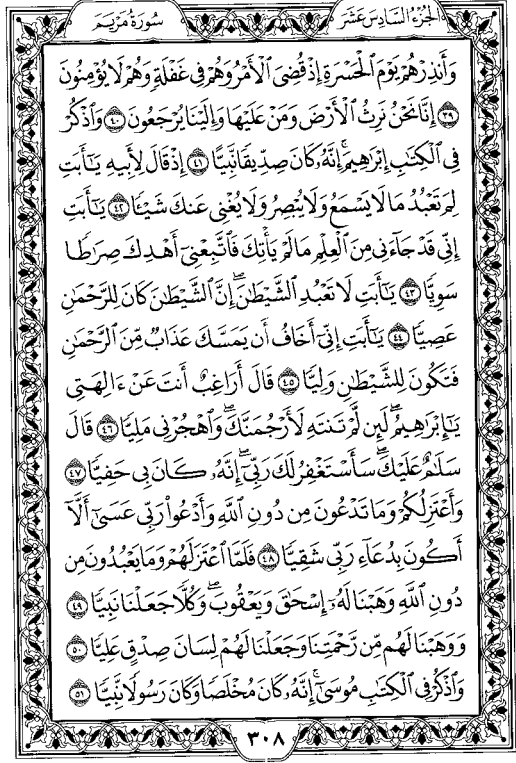 الجزء السادس عشر
سورة مريم
وَأَنذِرْهُمْ يَوْمَ ٱلْحَسْرَةِ إِذْ قُضِىَ ٱلْأَمْرُ وَهُمْ فِى غَفْلَةٍ وَهُمْ لَا يُؤْمِنُونَ
٣٩ إِنَّا نَحْنُ نَرِثُ ٱلْأَرْضَ وَمَنْ عَلَيْهَا وَإِلَيْنَا يُرْجَعُونَ ٤٠ وَٱذْكُرْ
فِى ٱلْكِتَٰبِ إِبْرَٰهِيمَ ۚ إِنَّهُۥ كَانَ صِدِّيقًا نَّبِيًّا ٤١ إِذْ قَالَ لِأَبِيهِ يَٰٓأَبَتِ
لِمَ تَعْبُدُ مَا لَا يَسْمَعُ وَلَا يُبْصِرُ وَلَا يُغْنِى عَنكَ شَيْـًٔا ٤٢ يَٰٓأَبَتِ
إِنِّى قَدْ جَآءَنِى مِنَ ٱلْعِلْمِ مَا لَمْ يَأْتِكَ فَٱتَّبِعْنِىٓ أَهْدِكَ صِرَٰطًا
سَوِيًّا ٤٣ يَٰٓأَبَتِ لَا تَعْبُدِ ٱلشَّيْطَٰنَ ۖ إِنَّ ٱلشَّيْطَٰنَ كَانَ لِلرَّحْمَٰنِ
عَصِيًّا ٤٤ يَٰٓأَبَتِ إِنِّىٓ أَخَافُ أَن يَمَسَّكَ عَذَابٌ مِّنَ ٱلرَّحْمَٰنِ
فَتَكُونَ لِلشَّيْطَٰنِ وَلِيًّا ٤٥ قَالَ أَرَاغِبٌ أَنتَ عَنْ ءَالِهَتِى
يَٰٓإِبْرَٰهِيمُ ۖ لَئِن لَّمْ تَنتَهِ لَأَرْجُمَنَّكَ ۖ وَٱهْجُرْنِى مَلِيًّا ٤٦ قَالَ
سَلَٰمٌ عَلَيْكَ ۖ سَأَسْتَغْفِرُ لَكَ رَبِّىٓ ۖ إِنَّهُۥ كَانَ بِى حَفِيًّا ٤٧
وَأَعْتَزِلُكُمْ وَمَا تَدْعُونَ مِن دُونِ ٱللَّهِ وَأَدْعُوا۟ رَبِّى عَسَىٰٓ أَلَّآ
أَكُونَ بِدُعَآءِ رَبِّى شَقِيًّا ٤٨ فَلَمَّا ٱعْتَزَلَهُمْ وَمَا يَعْبُدُونَ مِن
دُونِ ٱللَّهِ وَهَبْنَا لَهُۥٓ إِسْحَٰقَ وَيَعْقُوبَ ۖ وَكُلًّا جَعَلْنَا نَبِيًّا ٤٩
وَوَهَبْنَا لَهُم مِّن رَّحْمَتِنَا وَجَعَلْنَا لَهُمْ لِسَانَ صِدْقٍ عَلِيًّا ٥٠
وَٱذْكُرْ فِى ٱلْكِتَٰبِ مُوسَىٰٓ ۚ إِنَّهُۥ كَانَ مُخْلَصًا وَكَانَ رَسُولًا نَّبِيًّا ٥١
٣٠٨